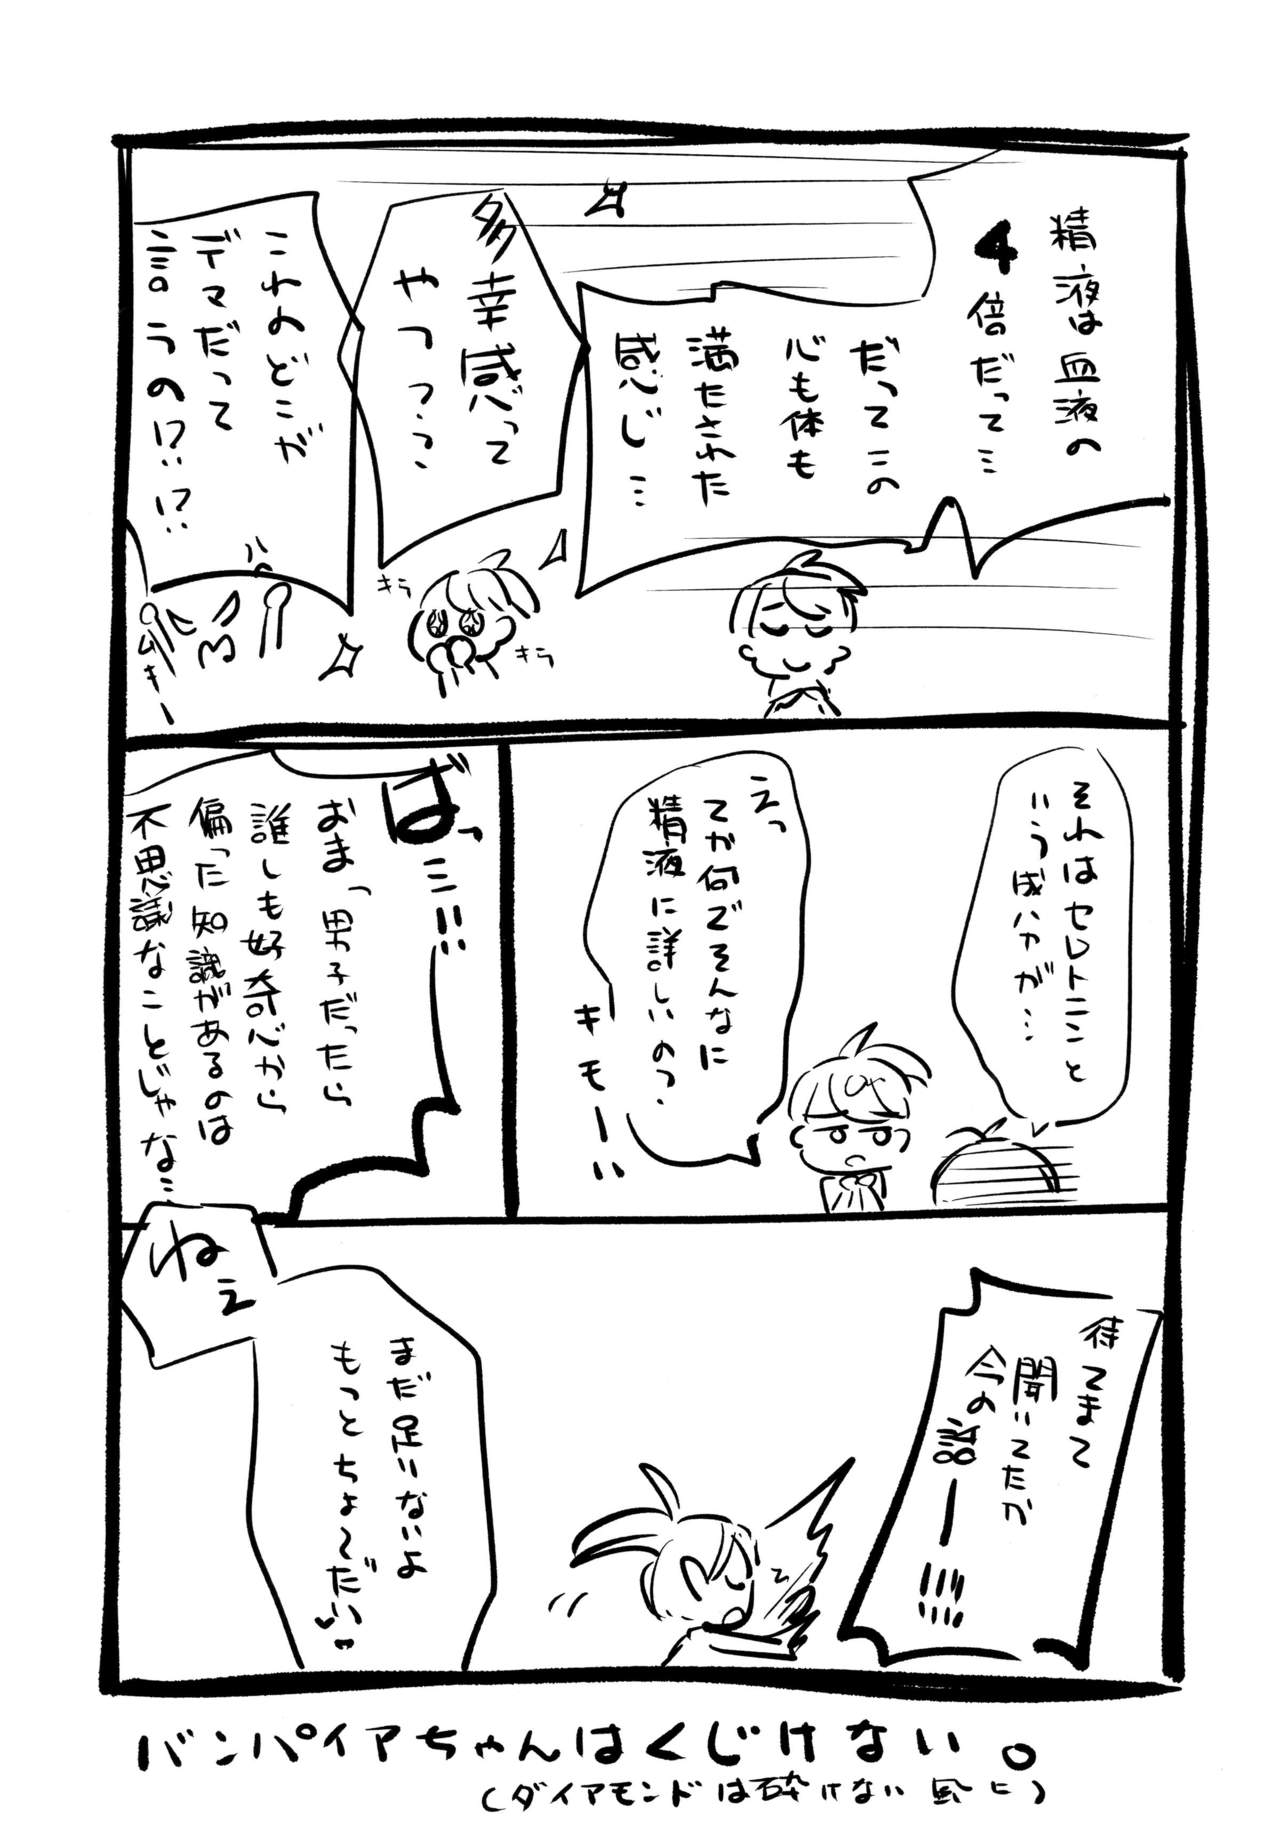 精液は血液の
4倍だって…
だってこの
心も体も
満たされた
感じ…
多幸感って
やつ？？
これのどこが
デマだって
言うの!?!?
キラ
キラ
ハ
ムキー
それはセロトニンと
いう成分が…
えっ
てか何でそんなに
精液に詳しいの？
キモーい
ばっ…!!
おまっ男子だったら
誰しも好奇心から
偏った知識があるのは
不思議なことじゃな…
待てまて
聞いてたか
今の話ー!!!!
まだ足りないよ
もっとちょ〜だい♥
ねぇ
バンパイアちゃんはくじけない。
(ダイアモンドは砕けない風に)